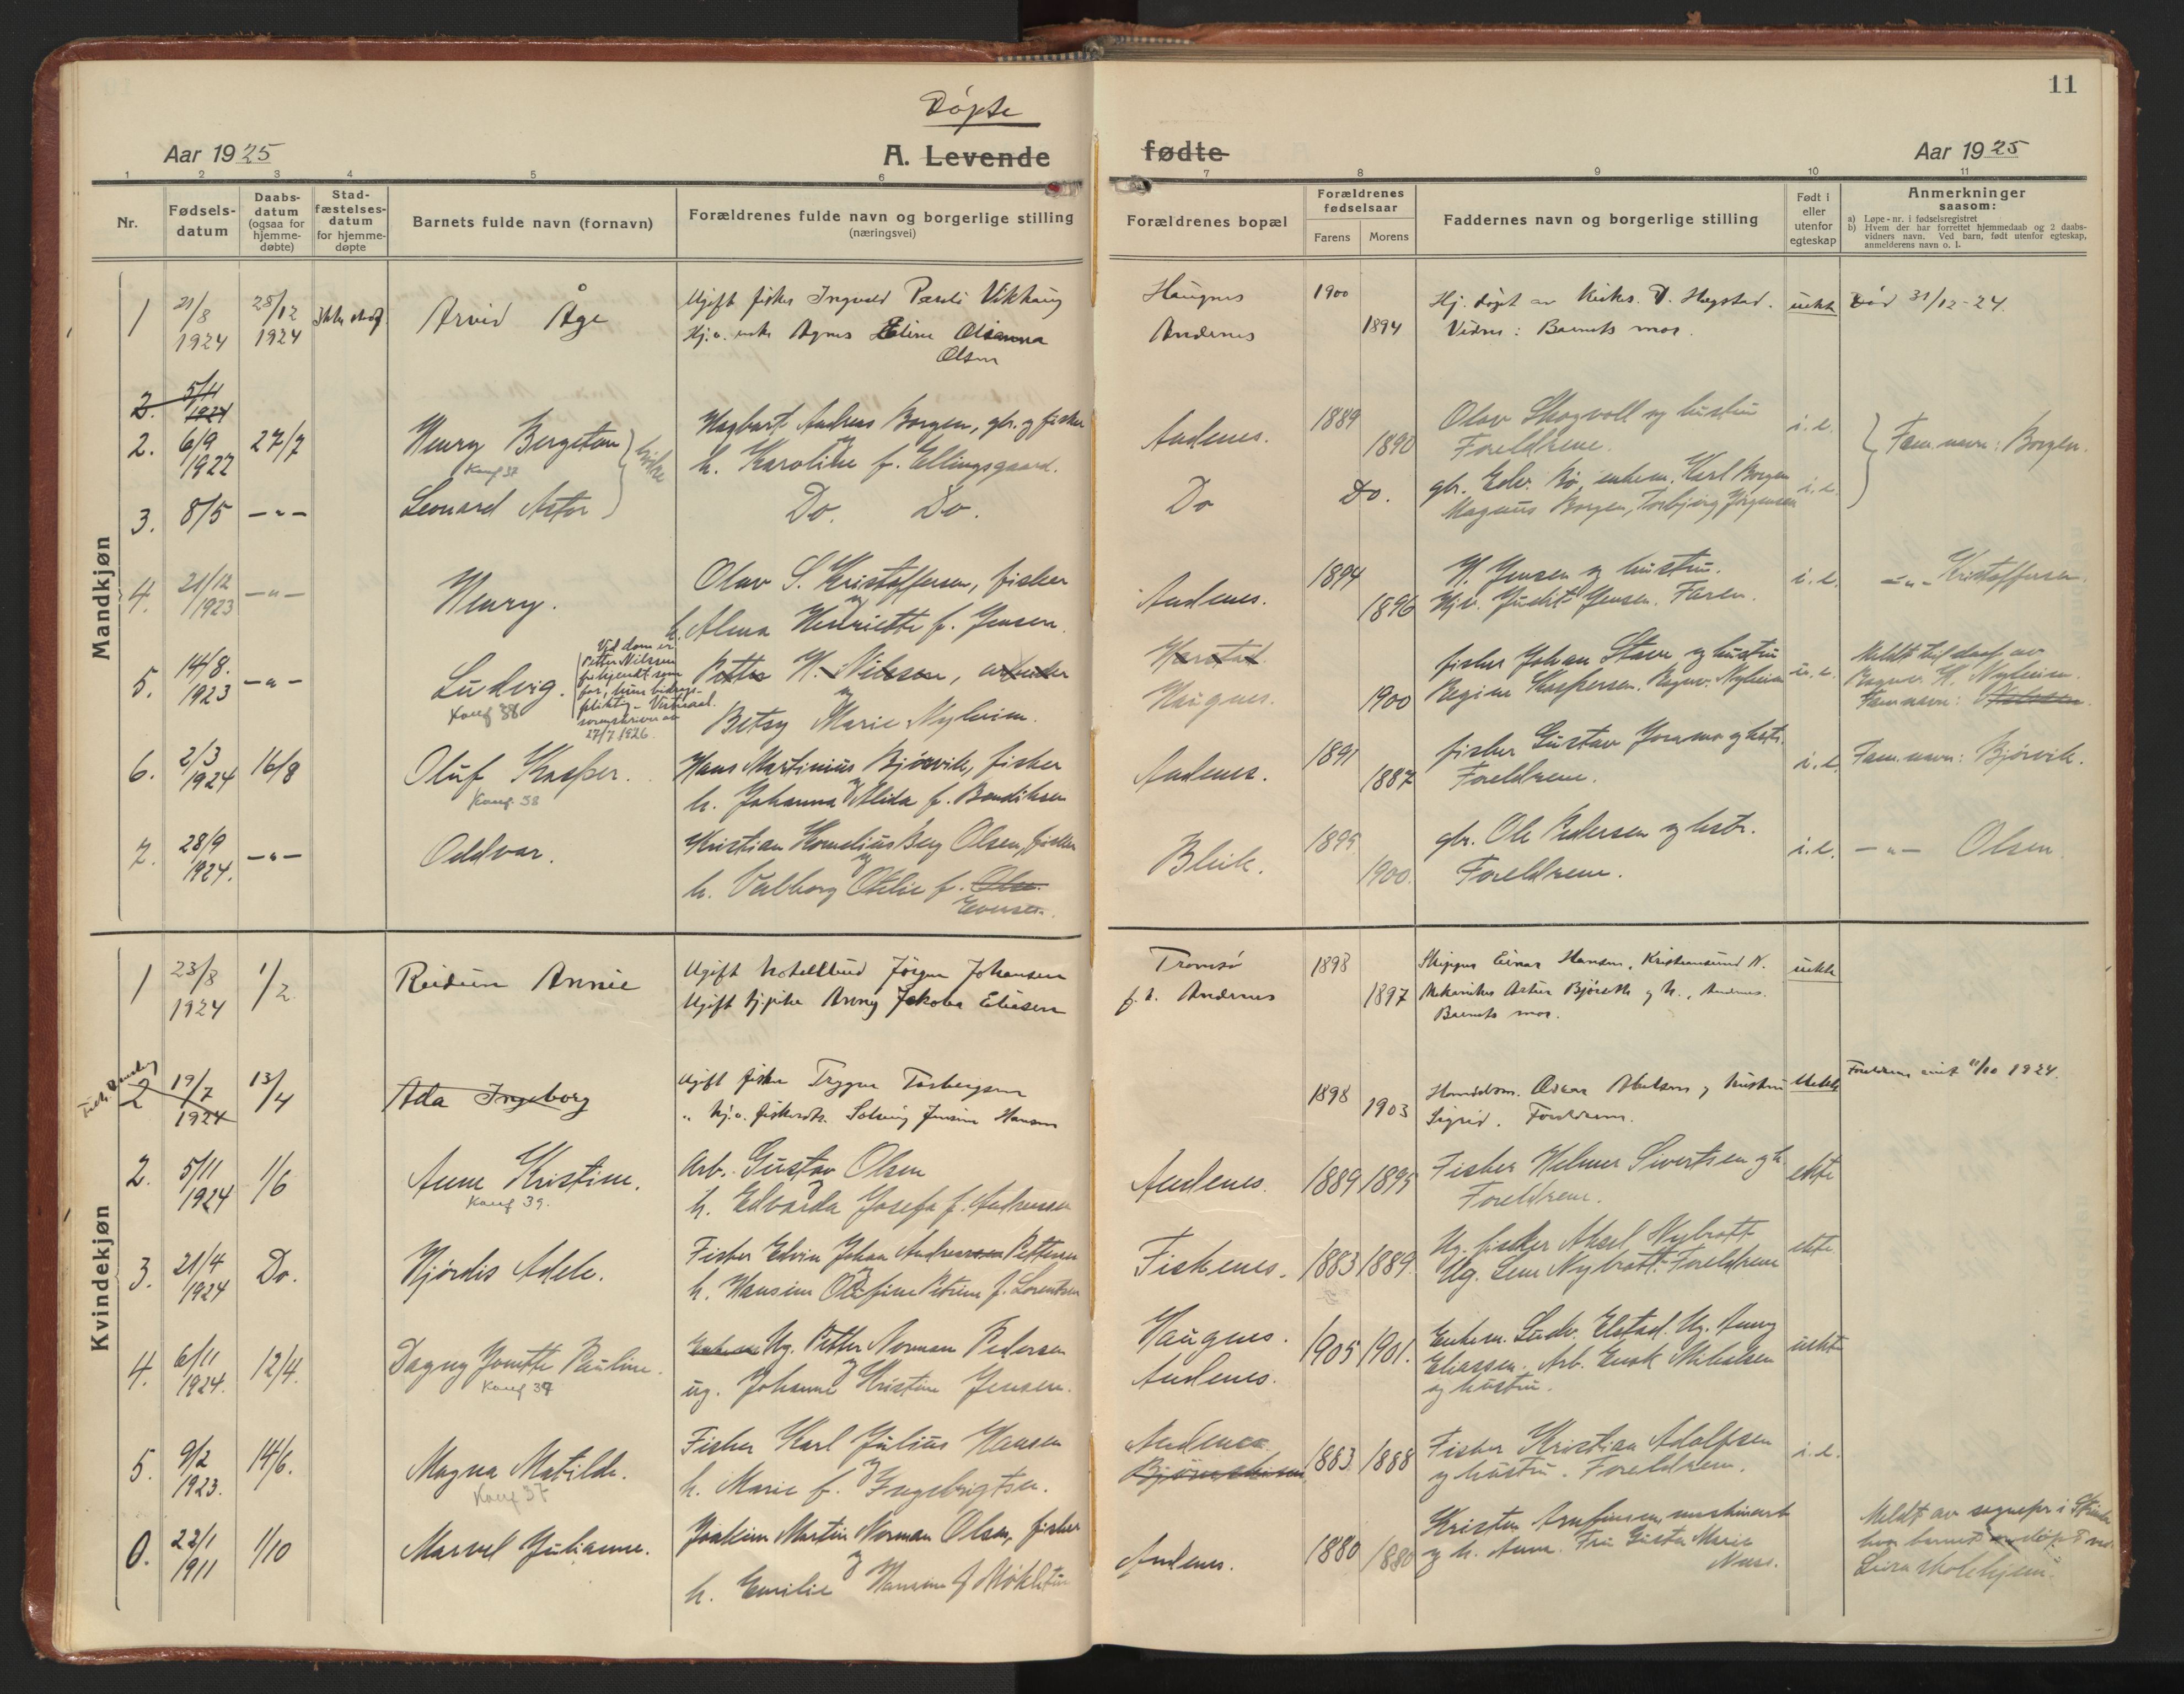 11
Døpte
Aar 1925
A. Levende
fødte
Aar 1925
1 2 3 4 5 6 7 8 9 10 11
Nr.
Fødsels-
datum
Daabs-
datum
(ogsaa for
hjemme-
døbte)
Stad-
fæstelses-
datum
for hjemme-
døpte
Barnets fulde navn (fornavn)
Forældrenes fulde navn og borgerlige stilling
(næringsvei)
Forældrenes bopæl
Forældrenes
fødselsaar
Farens Morens
Faddernes navn og borgerlige stilling
Født i
eller
utenfor
egteskap
Anmerkninger
saasom:
a) Løpe-nr. i fødselsregistret
b) Hvem der har forrettet hjemmedaab og 2 daabs-
vidners navn. Ved barn, født utenfor egteskap,
anmelderens navn o. l.
Mandkjøn
1 21/8 1924 28/12 1924 Arvid Åge
Ugift fisker Ingvald Vikhaug
Agnes Eline Olsen
Haugnes
Andenes
1900
1894
Hj. døpt av D. Hegstad.
Vidne: Barnets mor.
uekte
Død 31/12-24.
2. 5/11 1924
2. 6/9 1922 27/7 Henry Bergeton
Konf 37
Hagbart Andreas Borgen, gbr. og fisker
og
h. Karoline f. Ellingsgaard.
Andenes.
1889
1890
Olav Skogvoll og hustru
Foreldrene.
i.e.
Fam.navn: Borgen.
3. 8/5 -"- Leonard Astor
Do. Do.
Do
Do.
gbr. Edv. Bø, Karl Borgen
Magnus Borgen, Torbjørg Jørgensen
i.e.
4. 21/12 1923 -"- Henry.
Olav S. Kristoffersen, fisker
og
h. Alma Henriette f. Jensen.
Andenes.
1894
1896
H. Jensen og hustru.
Judit Jensen. Faren.
i.e.
-"- Kristoffersen.
5. 14/8. 1923 -"- Ludvig.
Konf 38
Ved dom er
Petter Nilssen
frikjendt som
far, kun bidrags-
pliktig - Vesteraal.
27/7 1926
Petter H. Nilssen, arbeider
og
Betsy Marie Nyheim.
Harstad.
Haugnes.
1900
fisker Johan Stave og hustru
Regine Kaspersen. Nyheim
u.e.
Meldt til daap av
H. Nyheim.
Famnavn: Nilssen.
6. 2/3 1924 16/8 Oluf Kasper.
Konf. 38
Hans Martinius Bjørvik, fisker
og
h. Johanna Alida f. Bendiksen
Andenes.
1891
1887
fisker Gustav
Foreldrene.
i.e.
Fam.navn: Bjørvik.
7. 28/9 1924. -"- Oddvar.
Kristian Kornelius Berg Olsen, fisker
og
h. Valborg Otelie f. Olsen
Evensen.
Bleik.
1895
1900.
gbr. Ole Pedersen og hstr.
Foreldrene.
i.e.
-"- Olsen.
Kvindekjøn
1 23/8 1924 1/2. Reidun Annie
Ugift hotellbud Jörgen Johansen
Ugift Anny Jakoba Eliasen
Tromsø
f.t. Andenes
1898
1897
Skipper Einar Hansen, Kristiansund N.
Mekaniker Astur og h., Andenes.
Barnets mor.
uekte
2 19/7 1924 13/4 Ada Ingeborg
Ugift fisker Trygve Torbergsen
" Solveig Jensine Hansen
1898
1903
Oskar og hustru
Sigrid. Foreldrene.
Uekte
Foreldrene 11/10 1924.
2. 5/11 1924 1/6 Anne Kristine.
Konf 39.
Arb. Gustav Olsen
og
h. Edvarda Josefa f. Andreassen
Andenes.
1889 1895
Fisker Helmer Sivertsen og h.
Foreldrene.
ekte
3. 21/4 1924 Do. Hjördis Adele.
Fisker Edvin Johan Andreassen Pettersen
h. Hansine Olefine Petrine f. Lorentsen
Fiskenes.
1883 1889.
Ug. fisker Aksel Nybrott
Ug. Lene Nybrott. Foreldrene
ekte
4. 6/11 1924. 12/4. Dagny Jonette Pauline.
Konf 39
Ug. Petter Norman Pedersen
og
ug. Johanne Kristine Jensen.
Haugnes.
Andenes.
1905 1901.
Enkem. Ludv. Elstad. Ug. Anny
Eliassen. Arb. Enok Mikalsen
og hustru.
uekte
5. 9/2 1923. 14/6. Magna Matilde.
Konf 37
Fisker Karl Julius Hansen
og
h. Marie f. Ingebrigtsen.
Andenes
1883 1888
Fisker Kristian Adolfsen
og hustru. Foreldrene.
i.e.
0. 22/1 1911 1/10 Marvel Julianne.
Joakim Martin Norman Olsen, fisker
og
h. Emilie Hansine f.
Andenes.
1880 1880
Kristen maskinist
og h. Anna. Fru Gusta Marie
Meldt av sognepr i
hvor barnet er døpt
Leira skolehjem.